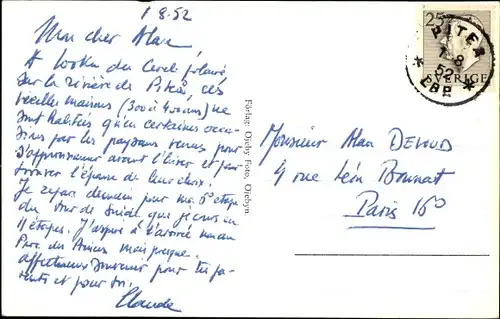 1 8.52
Mon cher Alan
A 100 km du Cercle polaire
sur la rivière de Piteå, ces
vieilles maisons (300 à 400 ans) ne
sont habitées qu'en certaines occa-
sions par les paysans venus pour
s'approvisionner avant l'hiver et pour
trouver l'épouse de leur choix.
Je repars demain pour ma 6e étape
du Tour de Suède que je cours en
11 étapes. J'aspire à l'arrivée
Parc des Princes mais presque.
affectueux souvenir pour tes pa-
rents et pour toi.
Claude
Förlag: Öjeby Foto, Öjebyn.
25
SVERIGE
PITEÅ
1-8
52
* LBR *
Monsieur Alan DEVOUD
4 rue Léon Bonnat
Paris 16°